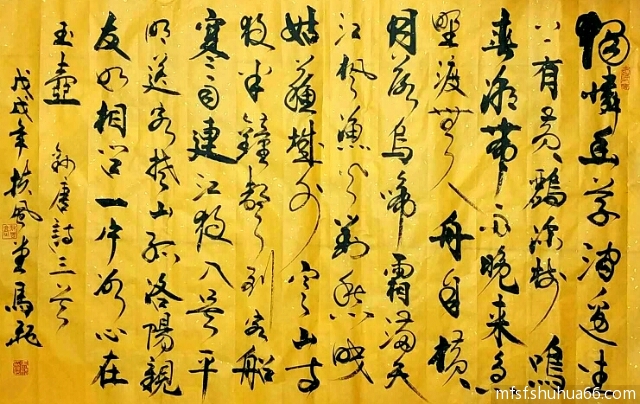 獨憐幽草澗邊生
上有黄鸝深樹鳴
春潮帶雨晚来急
野渡無人舟自横
月落烏啼霜滿天
江楓漁火對愁眠
姑蘇城外寒山寺
夜半鐘聲到客船
寒雨連江夜入吳平
明送客楚山孤洛陽親
友如相问一片冰心在
玉壺 錄唐詩三首
戊戌年扶風堂馬
mfsf.shuhua66.com